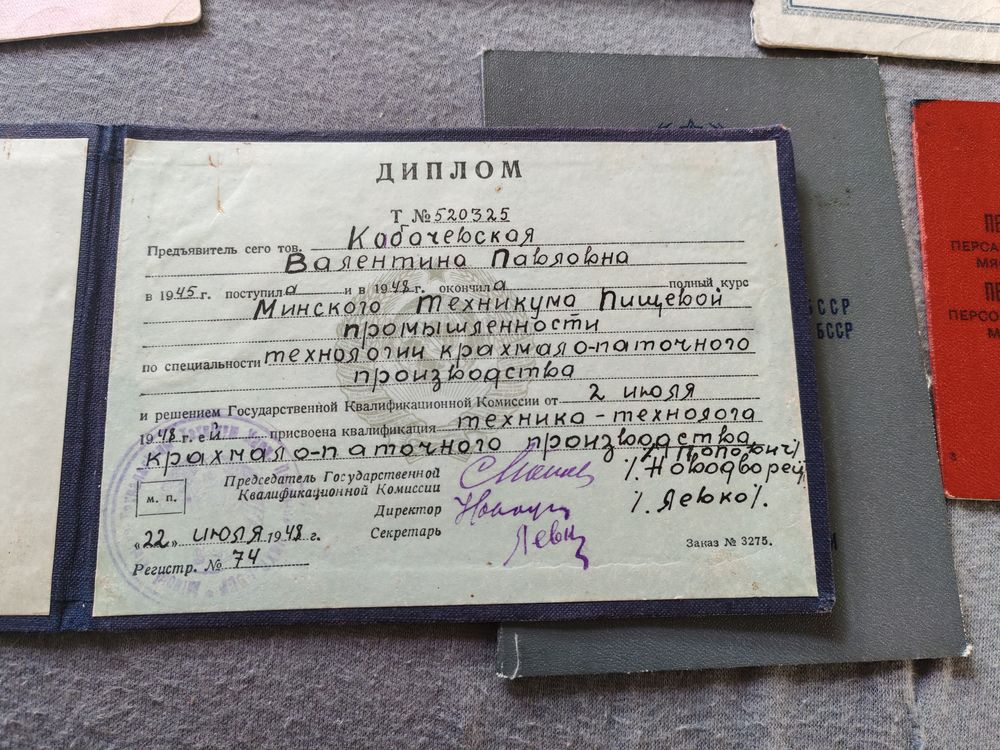 ДИПЛОМ
Т № 520325
Предъявитель сего тов. Кобачевская
Валентина Павловна
в 1945 г. поступила и в 1948 г. окончила полный курс
Минского Техникума Пищевой
промышленности
по специальности технологии крахмало-паточного
производства
и решением Государственной Квалификационной Комиссии от 2 июля
1948 г. ей присвоена квалификация техника-технолога
крахмало-паточного производства
Председатель Государственной
Квалификационной Комиссии
/Новодворец/
Директор
/Левко/.
Секретарь
м. п.
„22" июля 1948 г.
Регистр. № 74
Заказ № 3275.
БССР
БССР
ПЕРСА
МЯ
ПЕРСО
М